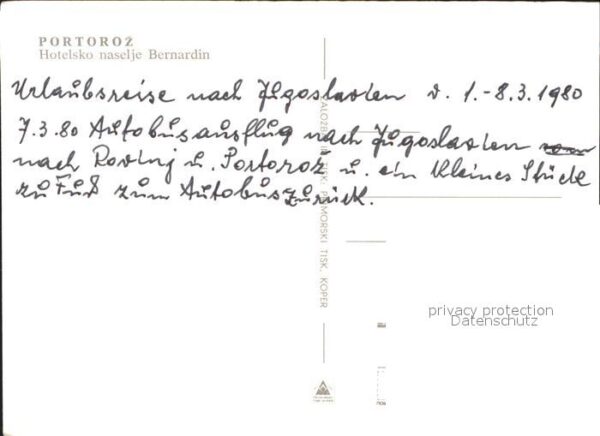 PORTOROŽ
Hotelsko naselje Bernardin
Urlaubsreise nach Jugoslavien v. 1.-8.3.1980
7.3.80 Autobusausflug nach Jugoslavien
nach Rovinj u. Portoroz u. ein kleines Stück
zu Fuß zum Autobus zurück.
TISK, PRIMORSKI TISK, KOPER
privacy protection
Datenschutz